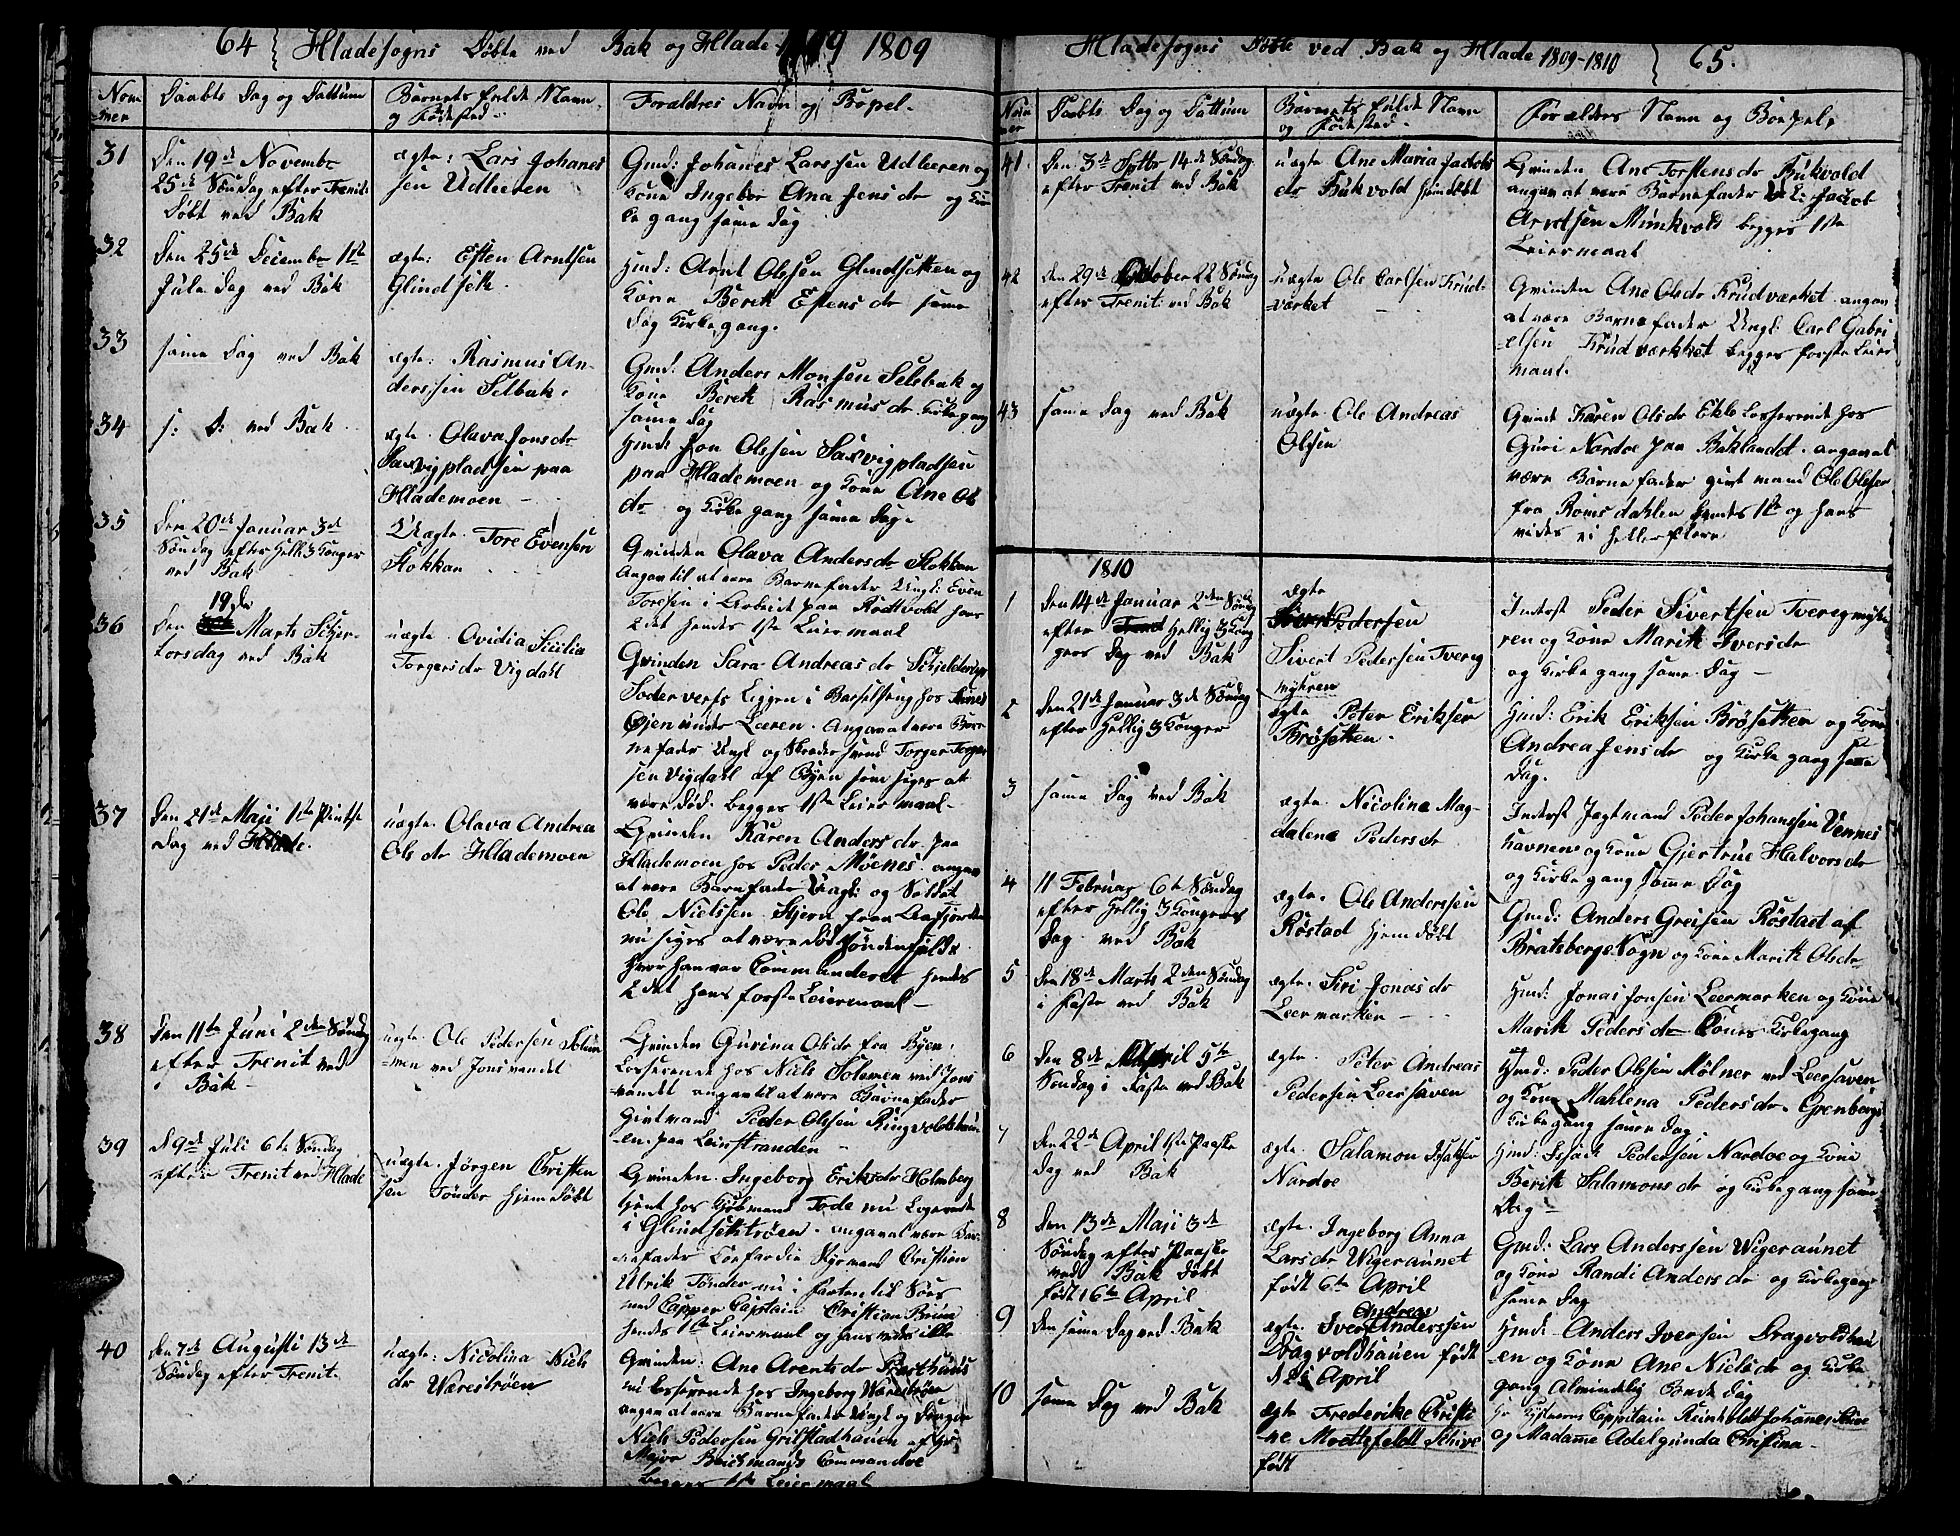 64 Hladesogns Døbte ved Bak og Hlade 1809
Nom mer
Daabts Dag og Dattum
Barnets fulde Navn og Fødested
Forældres Navn og Bopel.
31
Den 19de Novembr
25de Søndag efter Trenit:
Døbt ved Bak
ægte: Lars Johanes
sen Udleeren
Gmd: Johanes Larssen Udleeren og
Kone Ingebor Ana Jensdr og Kir
ke gang same Dag
32
Den 25de December 1ste
Jule Dag ved Bak
ægte: Esten Arntsen
Glindsetk.
Hmd: Arnt Olesen Glindsetten og
Kone Berek Estensdr same
Dag Kirkegang.
33
same Dag ved Bak
ægte: Rasmus An-
derssen Selbak.
Gmd: Anders Monsen Selsbak og
Kone Berek Rasmusdr Kirkegang
same Dag
34
s: D: ved Bak
ægte. Olava Jonsdr
Saxvigpladsen paa
Hlademoen
Hmd: Jon Olssen Saxvigpladsen
paa Hlademoen og Kone Ane Ols
dr og Kirke gang same Dag.
35
Den 20de Januar 3de
Søndag efter Hell: 3 Konger
ved Bak
Uægte. Tore Evensen
Stokkan
Qvinden Olava Andersdr Stokkan
Angav til at være Barnefader Ungk: Even
Toresen i Arbeide paa Rodtvold hans
2det hendes 1ste Leiermaal
36
19de
Den Marts Skjer-
torsdag ved Bak
uægte. Ovidia Sicilia
Torgersdr Vigdahl
Qvinden Sara Andreasdr
Søder Liggen i Barselseng hos
Øjen under Leeren. Angav at være Bar-
nefader Ungk og Skrædersvend Torger Torger
sen Vigdahl af Byen som siges at
være Død. begges 1ste Leiermaal-
37
Den 21de Maji 1ste Pintse
Dag ved Hlade.
uægte. Olava Andrea
Olsdr Hlademoen
Qvinden Karen Andersdr paa
Hlademoen hos Peder Møenes. angav
at være Barnefader Ungk: og Soldat
Ole Nielssen Stjern fraa
nu siges at være Død Søndenfields
hvor han var Commanderet hendes
2det hans første Leiermaal
38
Den 11te Juni 2den Søndag
efter Trenit ved
Bak
uægte. Ole Pedersen Solem
-men ved Jonsvandet
Qvinden Gurina Olsdr fra Byen.
Losserende hos Niels Solemen ved Jons
vandet angav til at være Barnefader
Givtmand Peder Olssen Ringvoldshau
en. paa Leinstranden
39
D 9de Juli 6te Søndag
efter Trenit ved Hlade
uægte. Jørgen Christien
sen Tønder hjemdøbt
Qvinden Ingeborg Eriksdr Holmberg
tjent hos Kjøbmand Tode nu Logerende
i Glindsetktrøen. angav at være Bar-
nefader Styrmand Christian
Ulrik Tønder nu i farten til Søes
med Capper Captain Cristian Brun
hendes 1ste Leiermaal og hans vides ikke
40
Den 7de Augusti 13de
Søndag efter Trenit.
uægte: Nicolina Niels
dr Wærestrøen
Qvinden: Ane Arentsdr
nu Losserende hos Ingeborg Wærestrøen
angav at være Barnefader Ungk og Dragon
Niels Pedersen Grilstadhauen af Hr
Major Brichmands Commandoe
begges 1ste Leiermaal
Hladesogns Døbte ved Bak og Hlade 1809-1810 65.
Nom mer
Daabts Dag og Dattum
Barnets fulde Navn og Fødested.
Forælders Navn og Boepel.
41.
Den 3de Sptbr 14de Søndag
efter Trenit ved Bak
uægte Ane Maria Jacobs
dr Bukvold hiemdøbt
Qvinden Ane Torstensdr Bukvold
angav at være Barnefader Jacob
Arntsen Munkvold begges 1ste
Leiermaal
42
Den 29de October 22 Søndag
efter Trenit: ved Bak
uægte Ole Carlsen Krud-
værket
Qvinden Ane Olsdr Krudværket angav
at være Barnefader Ungk: Carl Gabri
elsen Krudværkket begges første Leier
maal.
43
same Dag ved Bak
uægte. Ole Andreas
Olsen
Qvind Karen Olsdr Ekle Losserende hos
Guri Nardoe paa Baklandet. angav at
være Barnefader givt mand Ole Olssen
fra Romsdahlen hendes 1ste og hans
vides ei heller flere
1810
1
Den 14de Januar 2den Søndag
efter Hellig 3 Kon
gers Dag ved Bak
ægte
Sivert Pedersen Tvereg
myhren
Inderst Peder Sivertsen Tveregmyh
ren og Kone Marith Iversdr
og Kirke gang same Dag
2
Den 21de Januar 3de Søndag
efter Hellig 3 Konger
ægte Peter Eriksen
Brøsetten.
Hmd: Erik Eriksen Brøsetten og Kone
Andrea Jensdr og Kirke gang same
Dag.
3
same Dag ved Bak
ægte. Nicolina Mag-
dalena Pedersdr
Inderst Jagtmand Peder Johanssen Vennes
havnen og Kone Gjertrue Halvorsdr
og Kirke gang same Dag
4
11 Februar 6te Søndag
efter Hellig 3 Kongers
Dag ved Bak
ægte. Ole Anderssen
Røstad hjemdøbt
Gmd: Anders Greisen Røstad af
Bratsbergs Sogn og Kone Marith Olsdr
5
Den 18de Marts 2den Søndag
i Faste ved Bak
ægte. Siri Jonasdr
Leermarken
Hmd: Jonas Jonsen Leermarken og Kone
Marith Pedersdr Kones Kirkegang
6
Den 8de April 5te
Søndag i Faste ved Bak
ægte. Peter Andreas
Pedersen Leersaven
Hmd: Peder Olssen Mølner ved Leersaven
og Kone Mahlena Pedersdr Grenborgs
Kirkegang same Dag.
7
Den 22de April 1ste Paaske
Dag ved Bak
ægte. Salamon Isaksen
Nardoe
Hmd: Isach Pedersen Nardoe og Kone
Berith Salamonsdr og Kirkegang same
Dag
8
Den 13de Maji 3de
Søndag efter Paaske
ved Bak Døbt
født 16te April
ægte. Ingeborg Anna
Larsdr Wigeraunet
født 6te April
Gmd: Lars Anderssen Wigeraunet
og Kone Randi Andersdr og Kirkegang
same Dag
9
Den same Dag ved Bak
Andreas
ægte. Iver Anderssen
Dragvoldhauen født
April
Hmd Anders Iversen Dragvoldhau
-en og Kone Ane Nielsdr og Kirke
gang Almindelig Bonde Dag
10
same Dag ved Bak
ægte Frederike Christi
ne Moetzfeldt Schive
født
Hr Capitain Reinholdt Johannes Schive
og Madamme Adelgunda Christina